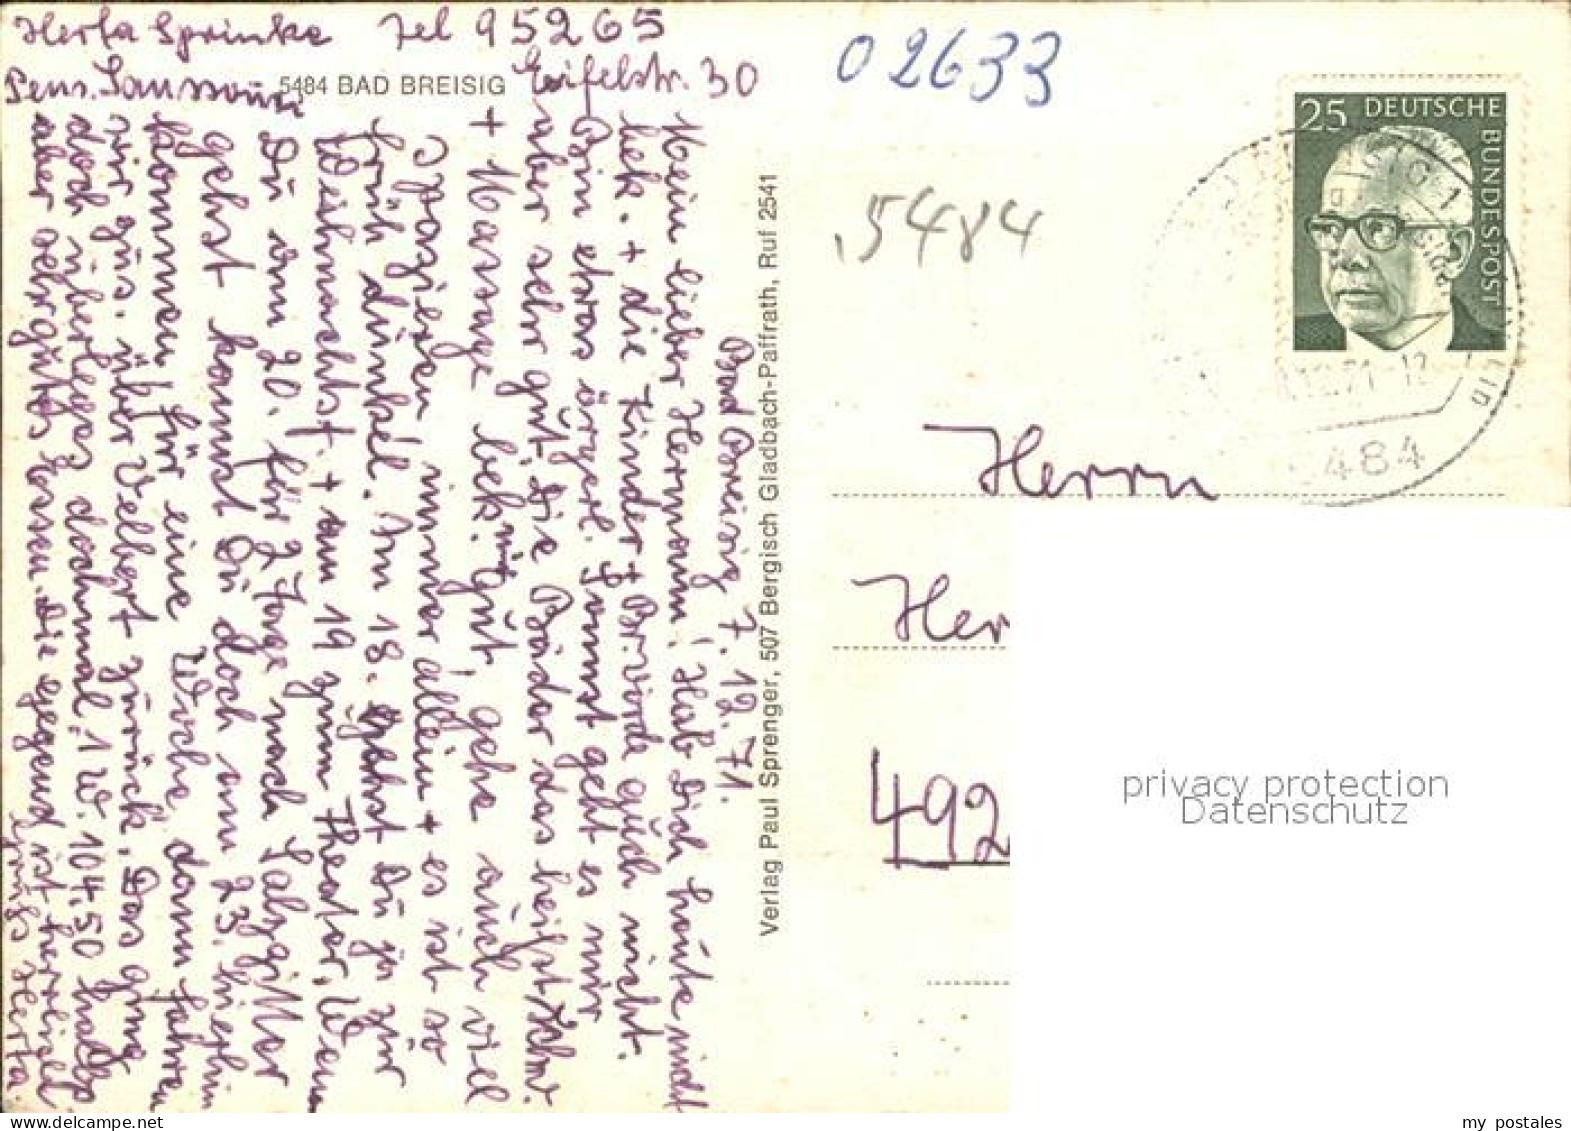 Herta Sprinke Tel 95265
Pens. Sanssouci 5484 BAD BREISIG Eifelstr. 30
Bad Breisig 7.12.71.
Mein lieber Hermann! Hab Dich heute nicht
bek. + die Kinder + Br. würde auch nicht.
Bin etwas ärgerl. Sonst geht es mir
aber sehr gut. Die Bäder das heißt Schw.
+ Massage bek. mir gut, gehe auch viel
spazieren immer allein + es ist so
früh dunkel. Im 18. gehst Du ja zur
Weihnachtsf. + am 19 zum Theater. Wenn
Du am 20. für 2 Tage nach Salzgitter
gehst kannst Du doch am 23. hierhin
kommen für eine Woche dann fahren
wir zus. über Velbert zurück. Das ganze
doch überleges dochmal, 1 W. 104.50 halbp.
aber sehr gutes Essen. Die Gegend ist herrlich
Gruß Herta.
Verlag Paul Sprenger, 507 Bergisch Gladbach-Paffrath, Ruf 2541
02633
5484
25 DEUTSCHE BUNDESPOST
12.71-12
484
Herrn
Her
492
privacy protection
Datenschutz
my_postales